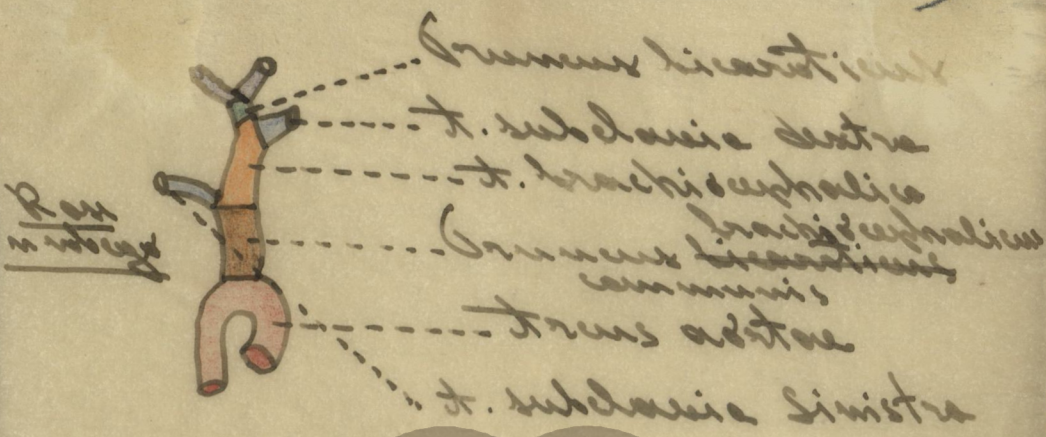 Truncus bicaroticus
A. subclavia dextra
A. brachiocephalica
brachiocephalicus
Truncus bicaroticus
communis
Arcus aortae
A. subclavia sinistra